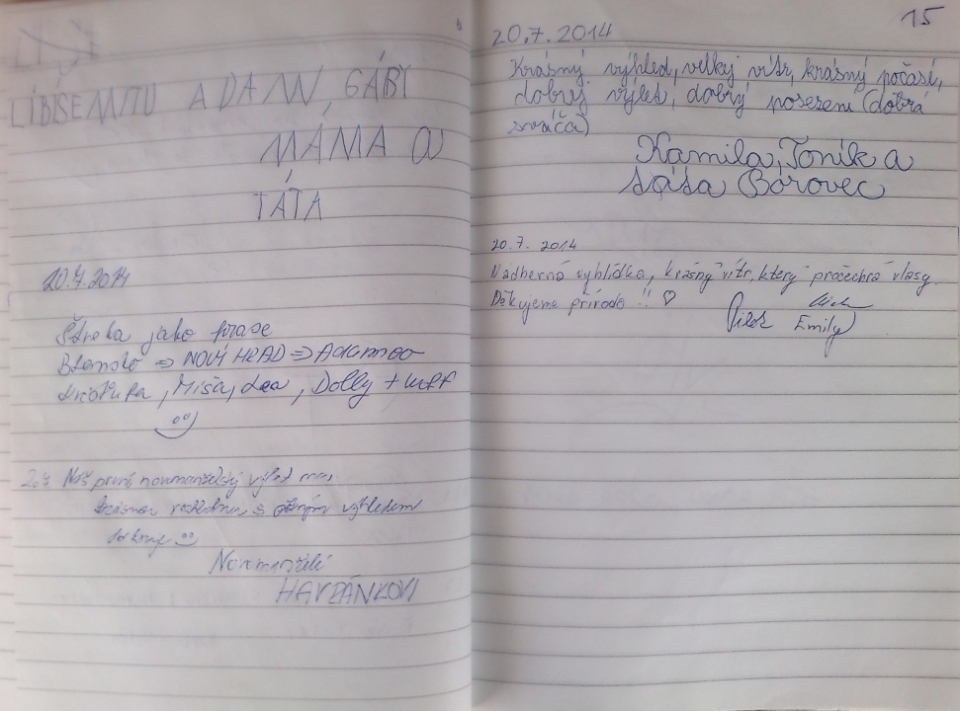 LÍBÍSE MITU ADAM, GÁBY
MÁMA a
TÁTA
20.7.2014
Štreka jako prase
Blansko => NOVÝ HRAD => Adamov
Míša, Lea, Dolly +
20.7. Náš první novomanželský výlet
rozhlednu s výhledem
Novomanželé
HAVRÁNKOVI
15
20.7.2014
Krásný výhled, velký vítr, krásný počasí,
dobrej výlet, dobrý posezení (dobrá
sváča)
Kamila, Toník a
Sáša Bórovec
20.7. 2014
Nádherná vyhlídka, krásný vítr, který pročechrá vlasy.
Děkujeme přírodo !! ♡
Emily